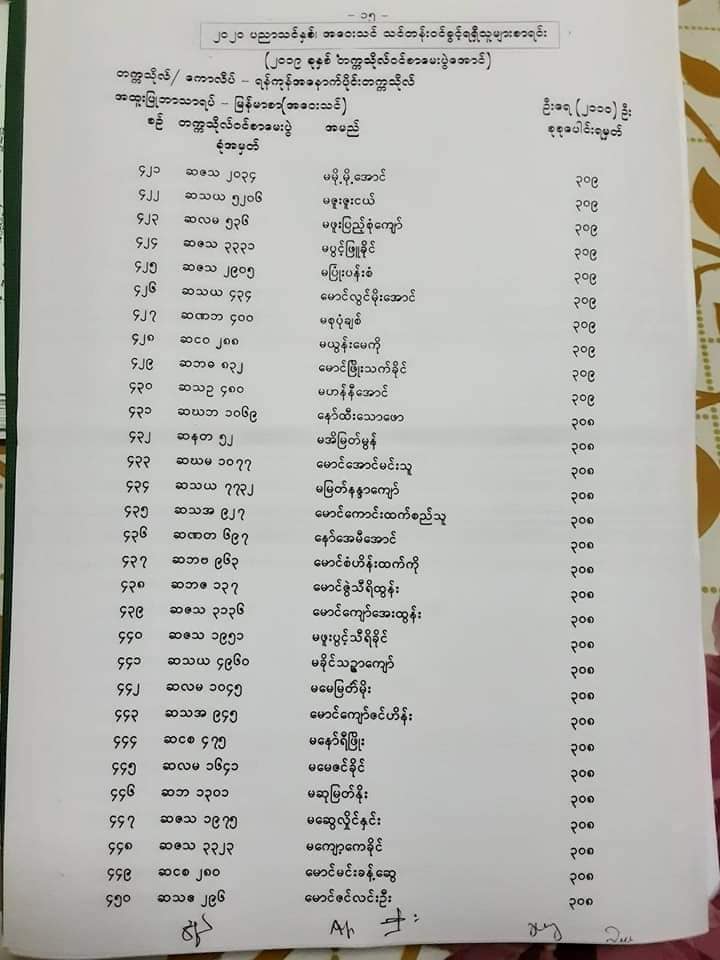 - ၁၅ -
၂၀၂၀ ပညာသင်နှစ်၊ အဝေးသင် သင်တန်းဝင်ခွင့်ရရှိသူများစာရင်း
(၂၀၁၉ ခုနှစ် တက္ကသိုလ်ဝင်စာမေးပွဲအောင်)
တက္ကသိုလ်/ ကောလိပ် - ရန်ကုန်အနောက်ပိုင်းတက္ကသိုလ်
အထူးပြုဘာသာရပ် - မြန်မာစာ(အဝေးသင်) ဦးရေ (၂၁၁၁) ဦး
စဉ် တက္ကသိုလ်ဝင်စာမေးပွဲ ခုံအမှတ် အမည် စုစုပေါင်းရမှတ်
၄၂၁ ဆဇသ ၂၀၃၄ မမို့မို့အောင် ၃၀၉
၄၂၂ ဆသယ ၅၂၀၆ မဇူးဇူးငယ် ၃၀၉
၄၂၃ ဆလမ ၅၃၆ မဖူးပြည့်စုံကျော် ၃၀၉
၄၂၄ ဆဇသ ၃၃၃၁ မပွင့်ဖြူခိုင် ၃၀၉
၄၂၅ ဆဇသ ၂၉၀၅ မပြုံးပန်းစံ ၃၀၉
၄၂၆ ဆသယ ၄၃၄ မောင်လွင်မိုးအောင် ၃၀၉
၄၂၇ ဆဏဘ ၄၀၀ မစုပုံချစ် ၃၀၉
၄၂၈ ဆငဝ ၂၈၈ မယွန်းမေကို ၃၀၉
၄၂၉ ဆဘဓ ၈၃၂ မောင်ဖြိုးသက်ခိုင် ၃၀၉
၄၃၀ ဆသဥ ၄၈၀ မဟန်နီအောင် ၃၀၉
၄၃၁ ဆဃဘ ၁၀၆၉ နော်ထီးသောဖော ၃၀၈
၄၃၂ ဆနတ ၅၂ မအိမြတ်မွန် ၃၀၈
၄၃၃ ဆဃမ ၁၀၇၇ မောင်အောင်မင်းသူ ၃၀၈
၄၃၄ ဆသယ ၇၇၃၂ မမြတ်နန္ဒာကျော် ၃၀၈
၄၃၅ ဆသအ ၉၂၇ မောင်ကောင်းထက်စည်သူ ၃၀၈
၄၃၆ ဆဏတ ၆၉၇ နော်အေမီအောင် ၃၀၈
၄၃၇ ဆဘဗ ၉၆၃ မောင်စံဟိန်းထက်ကို ၃၀၈
၄၃၈ ဆဘဇ ၁၃၇ မောင်ဇွဲသီရိထွန်း ၃၀၈
၄၃၉ ဆဇသ ၃၁၃၆ မောင်ကျော်အေးထွန်း ၃၀၈
၄၄၀ ဆဇသ ၁၉၅၁ မဖူးပွင့်သီရိခိုင် ၃၀၈
၄၄၁ ဆသယ ၄၉၆၀ မခိုင်သဥ္ဇာကျော် ၃၀၈
၄၄၂ ဆလမ ၁၀၄၅ မမေမြတ်မိုး ၃၀၈
၄၄၃ ဆသအ ၉၄၅ မောင်ကျော်ဇင်ဟိန်း ၃၀၈
၄၄၄ ဆငစ ၄၇၅ မနော်ရီဖြိုး ၃၀၈
၄၄၅ ဆလမ ၁၆၄၁ မမေဇင်ခိုင် ၃၀၈
၄၄၆ ဆဘ ၁၃၀၁ မဆုမြတ်နိုး ၃၀၈
၄၄၇ ဆဇသ ၁၉၇၅ မဆွေလှိုင်နှင်း ၃၀၈
၄၄၈ ဆဇသ ၃၃၂၃ မကျော့ကေခိုင် ၃၀၈
၄၄၉ ဆငစ ၂၈၀ မောင်မင်းခန့်ဆွေ ၃၀၈
၄၅၀ ဆသဇ ၂၉၆ မောင်ဇင်လင်းဦး ၃၀၈